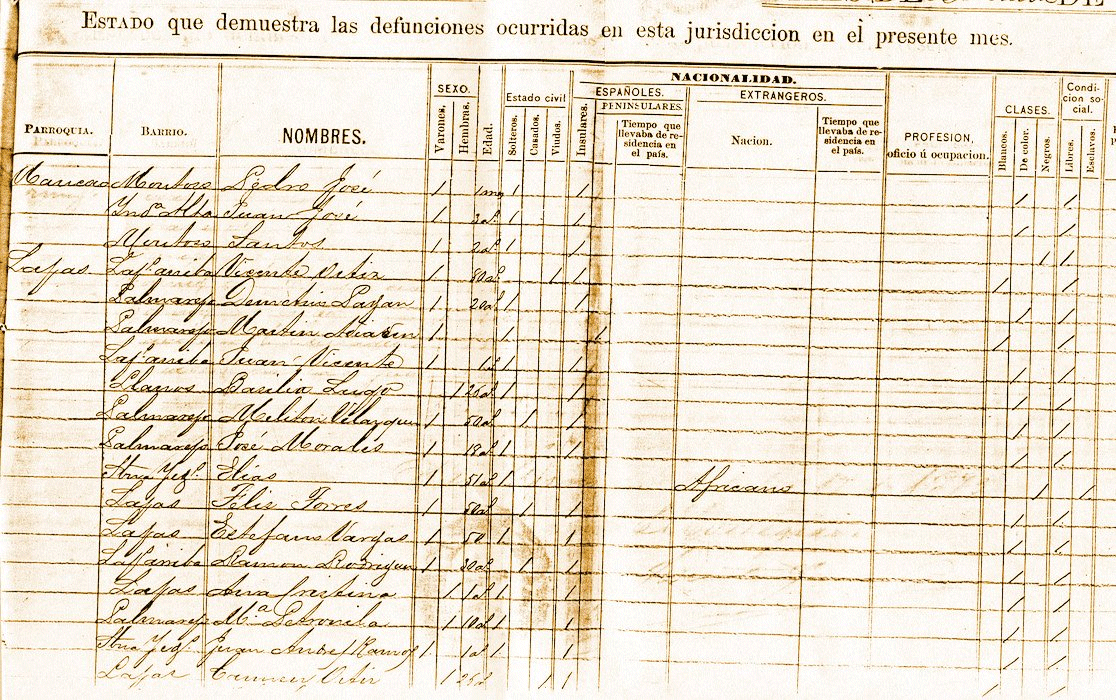 DE
ESTADO que demuestra las defunciones ocurridas en esta jurisdiccion en el presente mes.
PARROQUIA. BARRIO. NOMBRES. SEXO. Varones. Hembras. Edad. Estado civil Solteros. Casados. Viudos. NACIONALIDAD. Insulares. ESPAÑOLES. PENINSULARES. Tiempo que llevaba de residencia en el país. EXTRANGEROS. Nacion. Tiempo que llevaba de residencia en el país. PROFESION, oficio ú ocupacion. CLASES. Blancos. De color. Negros. Condicion social. Libres. Esclavos.
Montoso Pedro José 1 1 1 1 1
Alta Juan José 1 1 1 1 1
Montoso Santos 1 1 1 1 1
Lajas Laj.s arriba Vicente 1 80 1 1 1 1
Palmarejo 1 20 1 1 1 1
Palmarejo Martin 1 1 1 1 1
Laj.s arriba Juan Vicente 1 1 1 1 1
Llanos Basilia Lugo 1 25 1 1 1 1
Palmarejo Meliton Velazquez 1 50 1 1 1 1
Palmarejo José Morales 1 18 1 1 1 1
Elías 1 51 1 Africano 1 1
Lajas Félis Torres 1 50 1 1 1 1
Lajas Estefano Vargas 1 50 1 1 1 1
Laj.s arriba Ramon Rodriguez 1 30 1 1 1 1
Lajas Ana Cristina 1 1 1 1 1 1
Palmarejo M.a Petronila 1 10 1 1 1 1
Juan Andres Ramos 1 1 1 1 1 1
Lajas Carmen 1 25 1 1 1 1